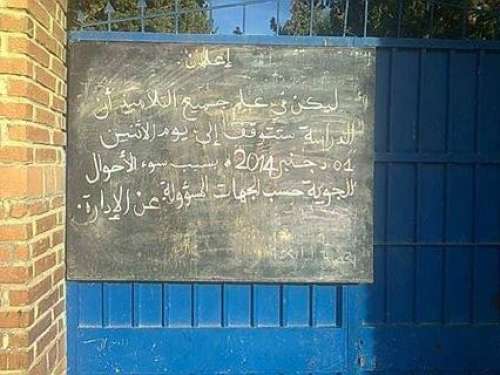 إعلان
ليكن في علم جميع التلاميذ أن
الدراسة ستتوقف إلى يوم الاثنين
01 دجنبر 2014م بسبب سوء الأحوال
الجوية حسب الجهات المسؤولة. عن الإدارة.